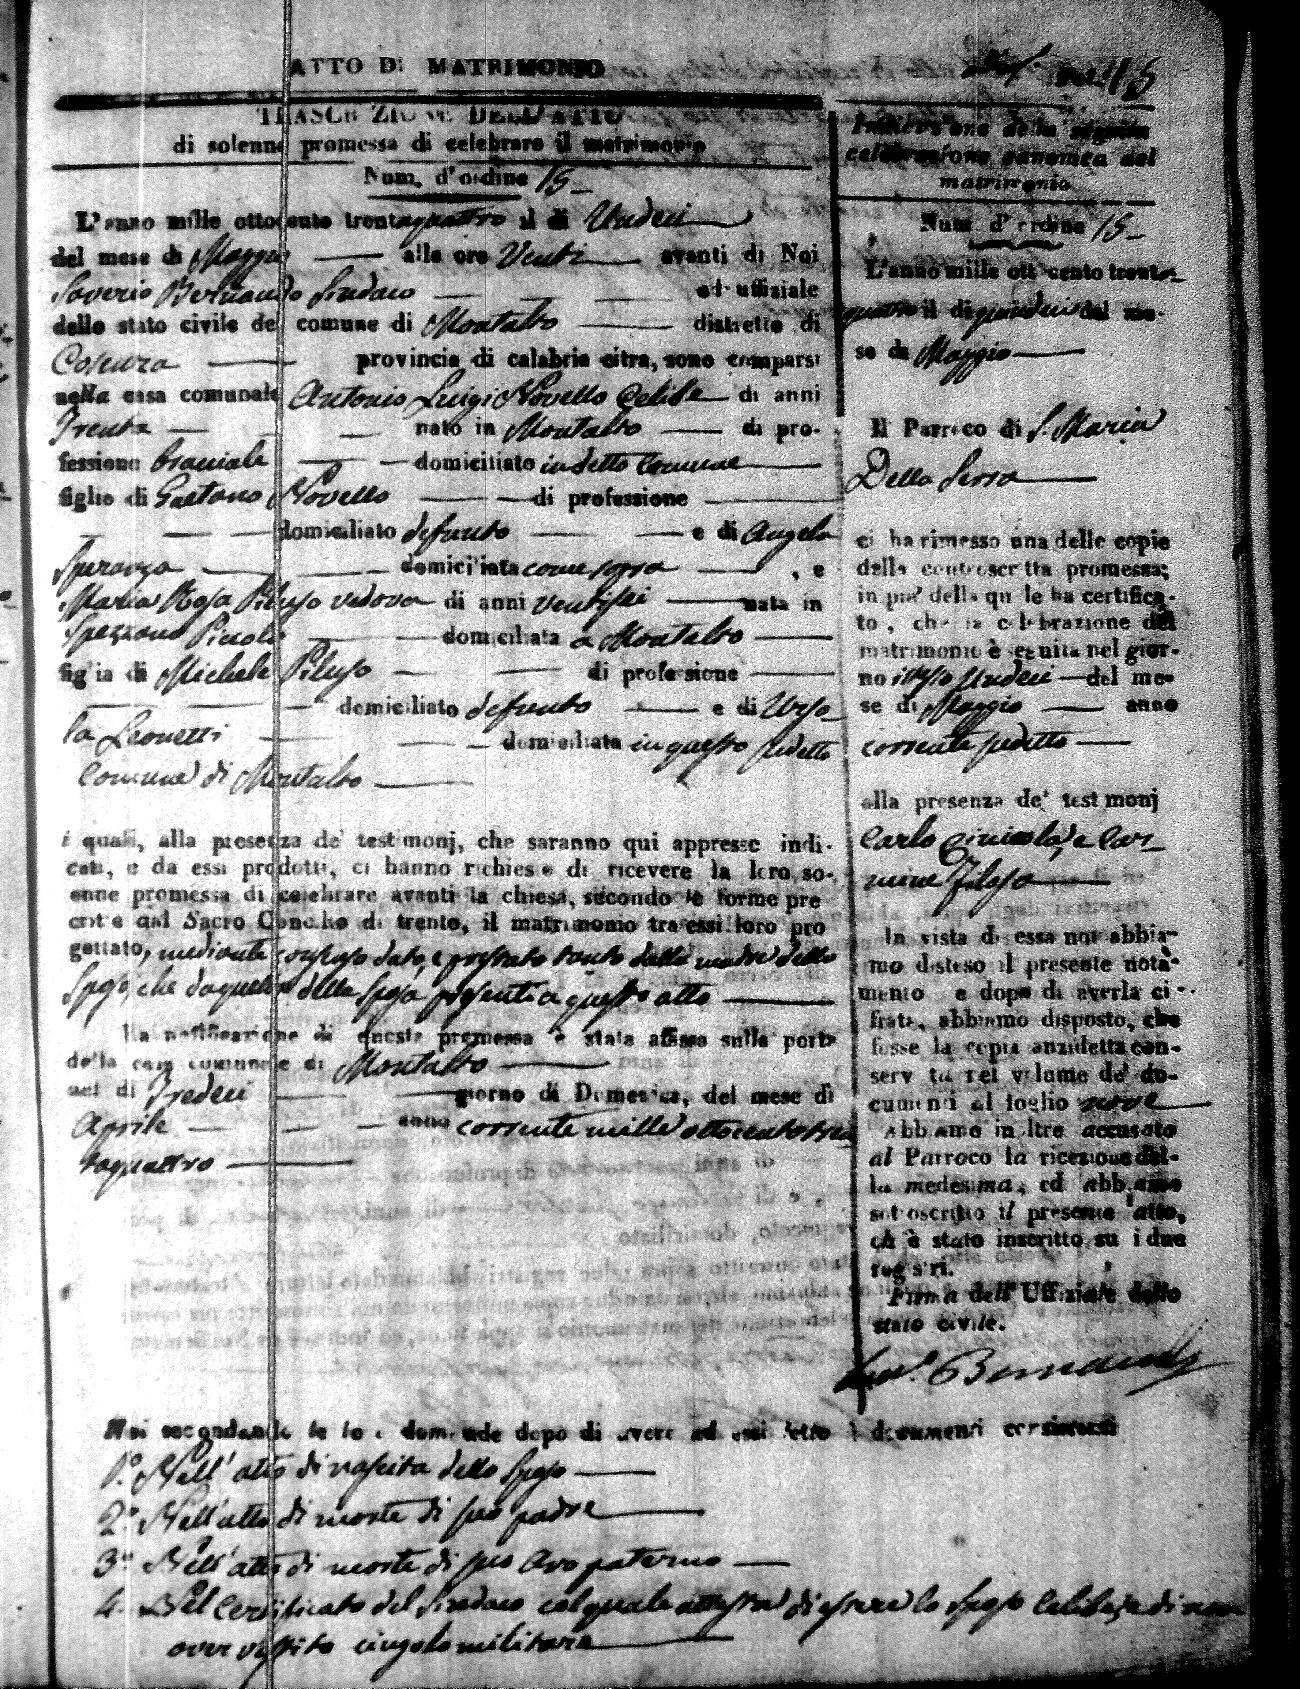 ATTO DI MATRIMONIO
TRASCRIZIONE DELL'ATTO
di solenne promessa di celebrare il matrimonio
Num. d'ordine 15
L'anno mille ottocento trentaquattro il di Undeci
del mese di Maggio alle ore Venti avanti di Noi
Saverio Bernaudo Sindaco ed uffiziale
dello stato civile del comune di Montalto distretto di
Cosenza provincia di calabria citra, sono comparsi
nella casa comunale Antonio Luigi Novello Celibe di anni
Trenta nato in Montalto di pro-
fessione bracciale domiciliato in detto Comune
figlio di Gaetano Novello di professione
domiciliato defunto e di Angela
Speranza domiciliata come sopra , e
Maria Rosa Piluso vedova di anni ventisei nata in
Spezzano Piccolo domiciliata a Montalto
figlia di Michele Piluso di professione
domiciliato defunto e di Urso
la Leonetti domiciliata in questo sudetto
Comune di Montalto
i quali, alla presenza de' testimonj, che saranno qui appresso indi-
cati, e da essi prodotti, ci hanno richiesto di ricevere la loro so-
enne promessa di celebrare avanti la chiesa, secondo le forme pre
critte dal Sacro Concilio di trento, il matrimonio tra essi loro pro
gettato, mediante consenso dato, e prestato tanto dalla madre dello
Sposo, che da quella della Sposa presenti a questo atto
La notificazione di questa promessa è stata affissa sulla porta
della casa comunale di Montalto
nel di Tredeci giorno di Domenica, del mese di
Aprile anno corrente mille ottocentotren
taquattro
15
Iscrizione della seguita
celebrazione canonica del
matrimonio
Num d'ordine 15
L'anno mille ottocento trenta-
quattro il di quindeci del me-
se di Maggio
Il Parroco di S. Maria
Della Serra
ci ha rimesso una delle copie
della controscritta promessa;
in piè della quale ha certifica-
to, che la celebrazione del
matrimonio è seguita nel gior-
no istesso Undeci del me-
se di Maggio anno
corrente sudetto
alla presenza de' testimonj
Carlo e Car-
mine Filoso
In vista di essa noi abbia-
mo disteso il presente nota-
mento e dopo di averla ci-
frata, abbiamo disposto, che
fosse la copia anzidetta con-
servata nel volume de' do-
cumenti al foglio nove
Abbiamo inoltre accusato
al Parroco la ricezione del-
la medesima, ed abbiamo
sottoscritto il presente atto,
ch'è stato inscritto su i due
registri.
Firma dell'Uffiziale dello
stato civile.
Sav.o Bernaudo
Noi secondando le loro domande dopo di avere ad essi letto i documenti consistenti
1.o Nell'atto di nascita dello Sposo
2.o Nell'atto di morte di suo padre
3.o Nell'atto di morte di suo avo paterno
4. Del Certificato del Sindaco col quale attesta di essere lo sposo Celibe, e di non
aver vestito cingolo militare